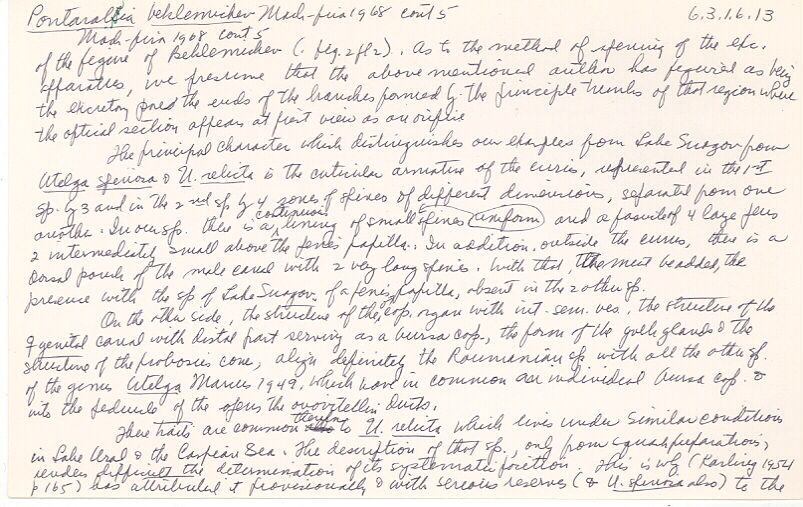 Pontaralia beklemichev Mack-fira 1968 cont 5 6.3.1.6.13
Mack-fira 1968 cont 5
of the figure of Beklemichev (. fig. 2 pl 2). As to the method of opening of the exc.
apparatus, we presume that the above mentioned author has figured as being
the excretory pore the ends of the branches formed by the principle trunks of that region where
the optical section appears at first view as an orifice
The principal character which distinguishes our examples from Lake Suagov from
Utelga spinosa & U. relicta is the cuticular armature of the cirrus, represented in the 1st
sp. by 3 and in the 2nd sp by 4 zones of spines of different dimensions, separated from one
another. In our sp. there is a continuous lining of small spines (uniform) and a of 4 large
2 intermediately small above the penis papilla. In addition, outside the cirrus, there is a
dorsal pouch of the male canal with 2 very long spines. With that, must be added, the
presence with the sp of Lake Suagov. of a penis papilla, absent in the 2 other sp.
On the other side, the structure of the cop. organ with int. sem. ves, the structure of the
♀ genital canal with distal part serving as a bursa cop, the form of the yolk glands & the
structure of the proboscis cone, align definitely the Roumanian sp with all the other sp.
of the genus Utelga Marcus 1949, which have in common an individual bursa cop. &
into the peduncle of the opens the ovovitellin ducts.
These traits are common therefore to U. relicta which lives under similar conditions
in Lake Aral & the Caspian Sea. The description of that sp., only from squash preparations,
renders difficult the determination of its systematic position. This is why (Karling 1954
p 165) has attributed it provisionally & with serious reserves (& U. spinosa also) to the